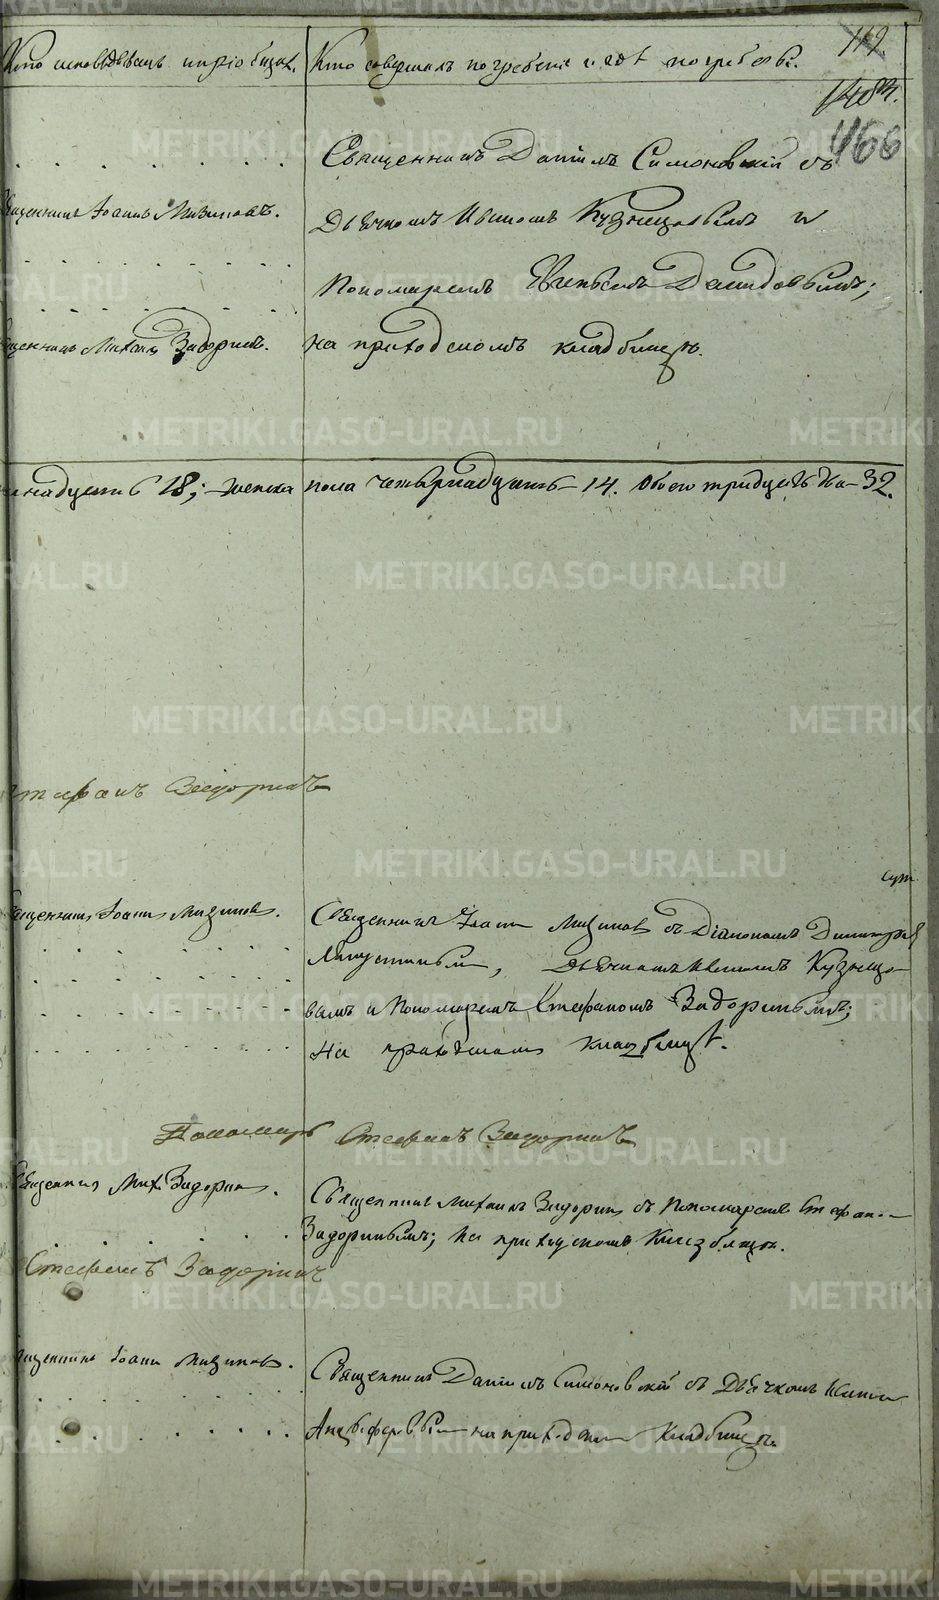 Кто исповѣдывалъ и пріобщалъ. Кто совершалъ погребеніе и гдѣ погребены.
112.
466
Священникъ Даніилъ Симоновскій съ
Священникъ Іоаннъ Мизиновъ.
Дьячкомъ Иваномъ Кузнецовымъ и
Пономаремъ Евгеньемъ Давидовымъ;
Священникъ Михаилъ Задоринъ.
на приходскомъ кладбищѣ.
надцать 18; женска пола четырнадцать 14. Обоего тридцать два 32.
Стефанъ Задоринъ
Священникъ Іоаннъ Мизиновъ.
Священникъ Іоаннъ Мизиновъ съ Діакономъ Димитріемъ
Лапустинымъ, Дьячкомъ Иваномъ Кузнецо-
вымъ и Пономаремъ Стефаномъ Задоринымъ;
На приходскомъ кладбищѣ.
Пономарь Стефанъ Задоринъ
Священникъ Мих. Задоринъ.
Священникъ Михаилъ Задоринъ съ Пономаремъ Стефан.
Задоринымъ; на приходскомъ кладбищѣ.
Стефанъ Задоринъ
Священникъ Іоаннъ Мизиновъ.
Священникъ Даніилъ Симоновскій съ Дьячкомъ
на приходском кладбищѣ.
METRIKI.GASO-URAL.RU